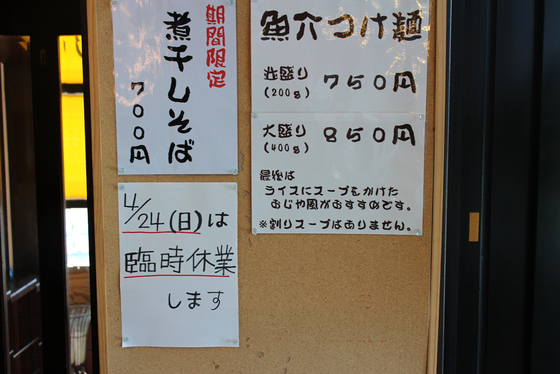 期間限定
煮干しそば
700円
魚介つけ麺
並盛り
(200g)
750円
大盛り
(400g)
850円
最後は
ライスにスープをかけた
おじや風がおすすめです。
※割りスープはありません。
4/24(日)は
臨時休業
します